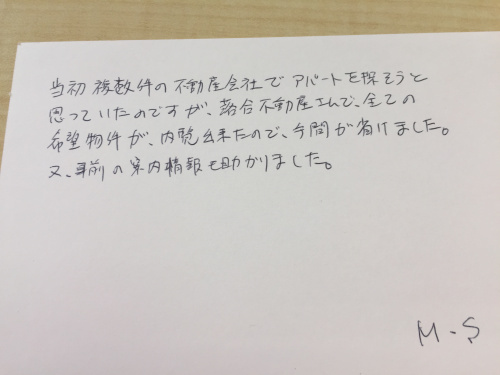 当初 複数件の不動産会社でアパートを探そうと
思っていたのですが、落合不動産さんで、全ての
希望物件が、内覧出来たので、手間が省けました。
又、事前の案内情報も助かりました。
M-S